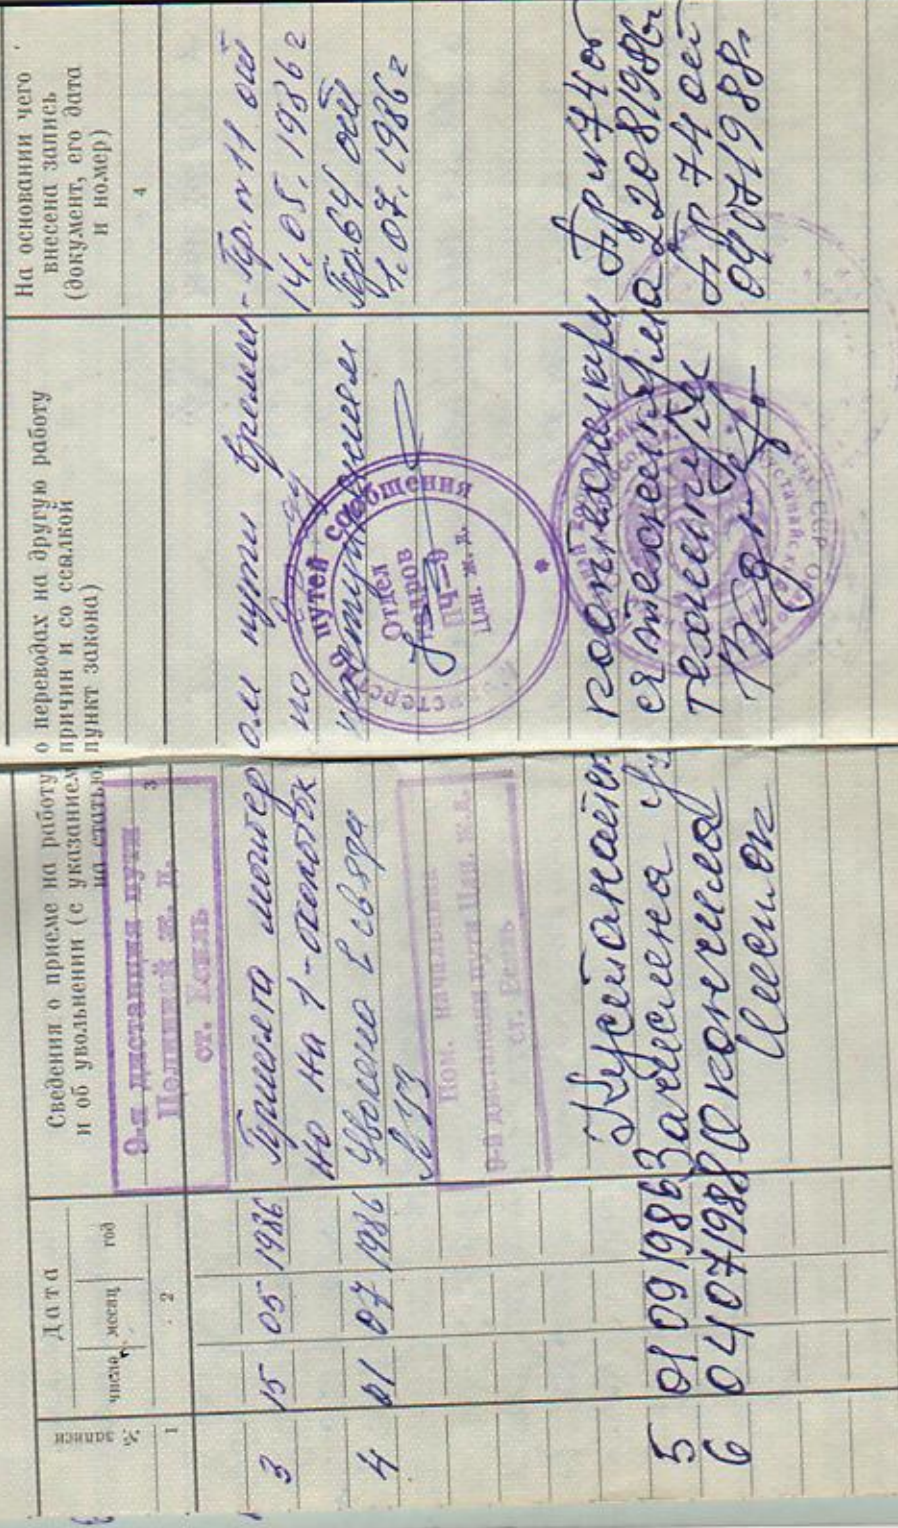 № записи
Дата
число месяц год
Сведения о приеме на работу, о переводах на другую работу
и об увольнении (с указанием причин и со ссылкой
на статью, пункт закона)
На основании чего
внесена запись
(документ, его дата
и номер)
1 2 3 4
9-я дистанция пути
Целинной ж. д.
ст. Есиль
3 15 05 1986 Принята монтером пути времен- Пр. №11 от
но на 1-околоток 14.05.1986 г
4 01 07 1986 Уволена в связи Пр.64 от
1.07.1986 г
Пом. начальника
9-й дистанции пути Цлн. ж.д.
ст. Есиль
путей сообщения
Отдел
кадров
ПЧ-9
Цлн. ж. д.
Кустанайск
5 01 09 1986 Зачислена
22081986г
6 04 07 1988 Окончила техникум Пр 74 от
04071988г